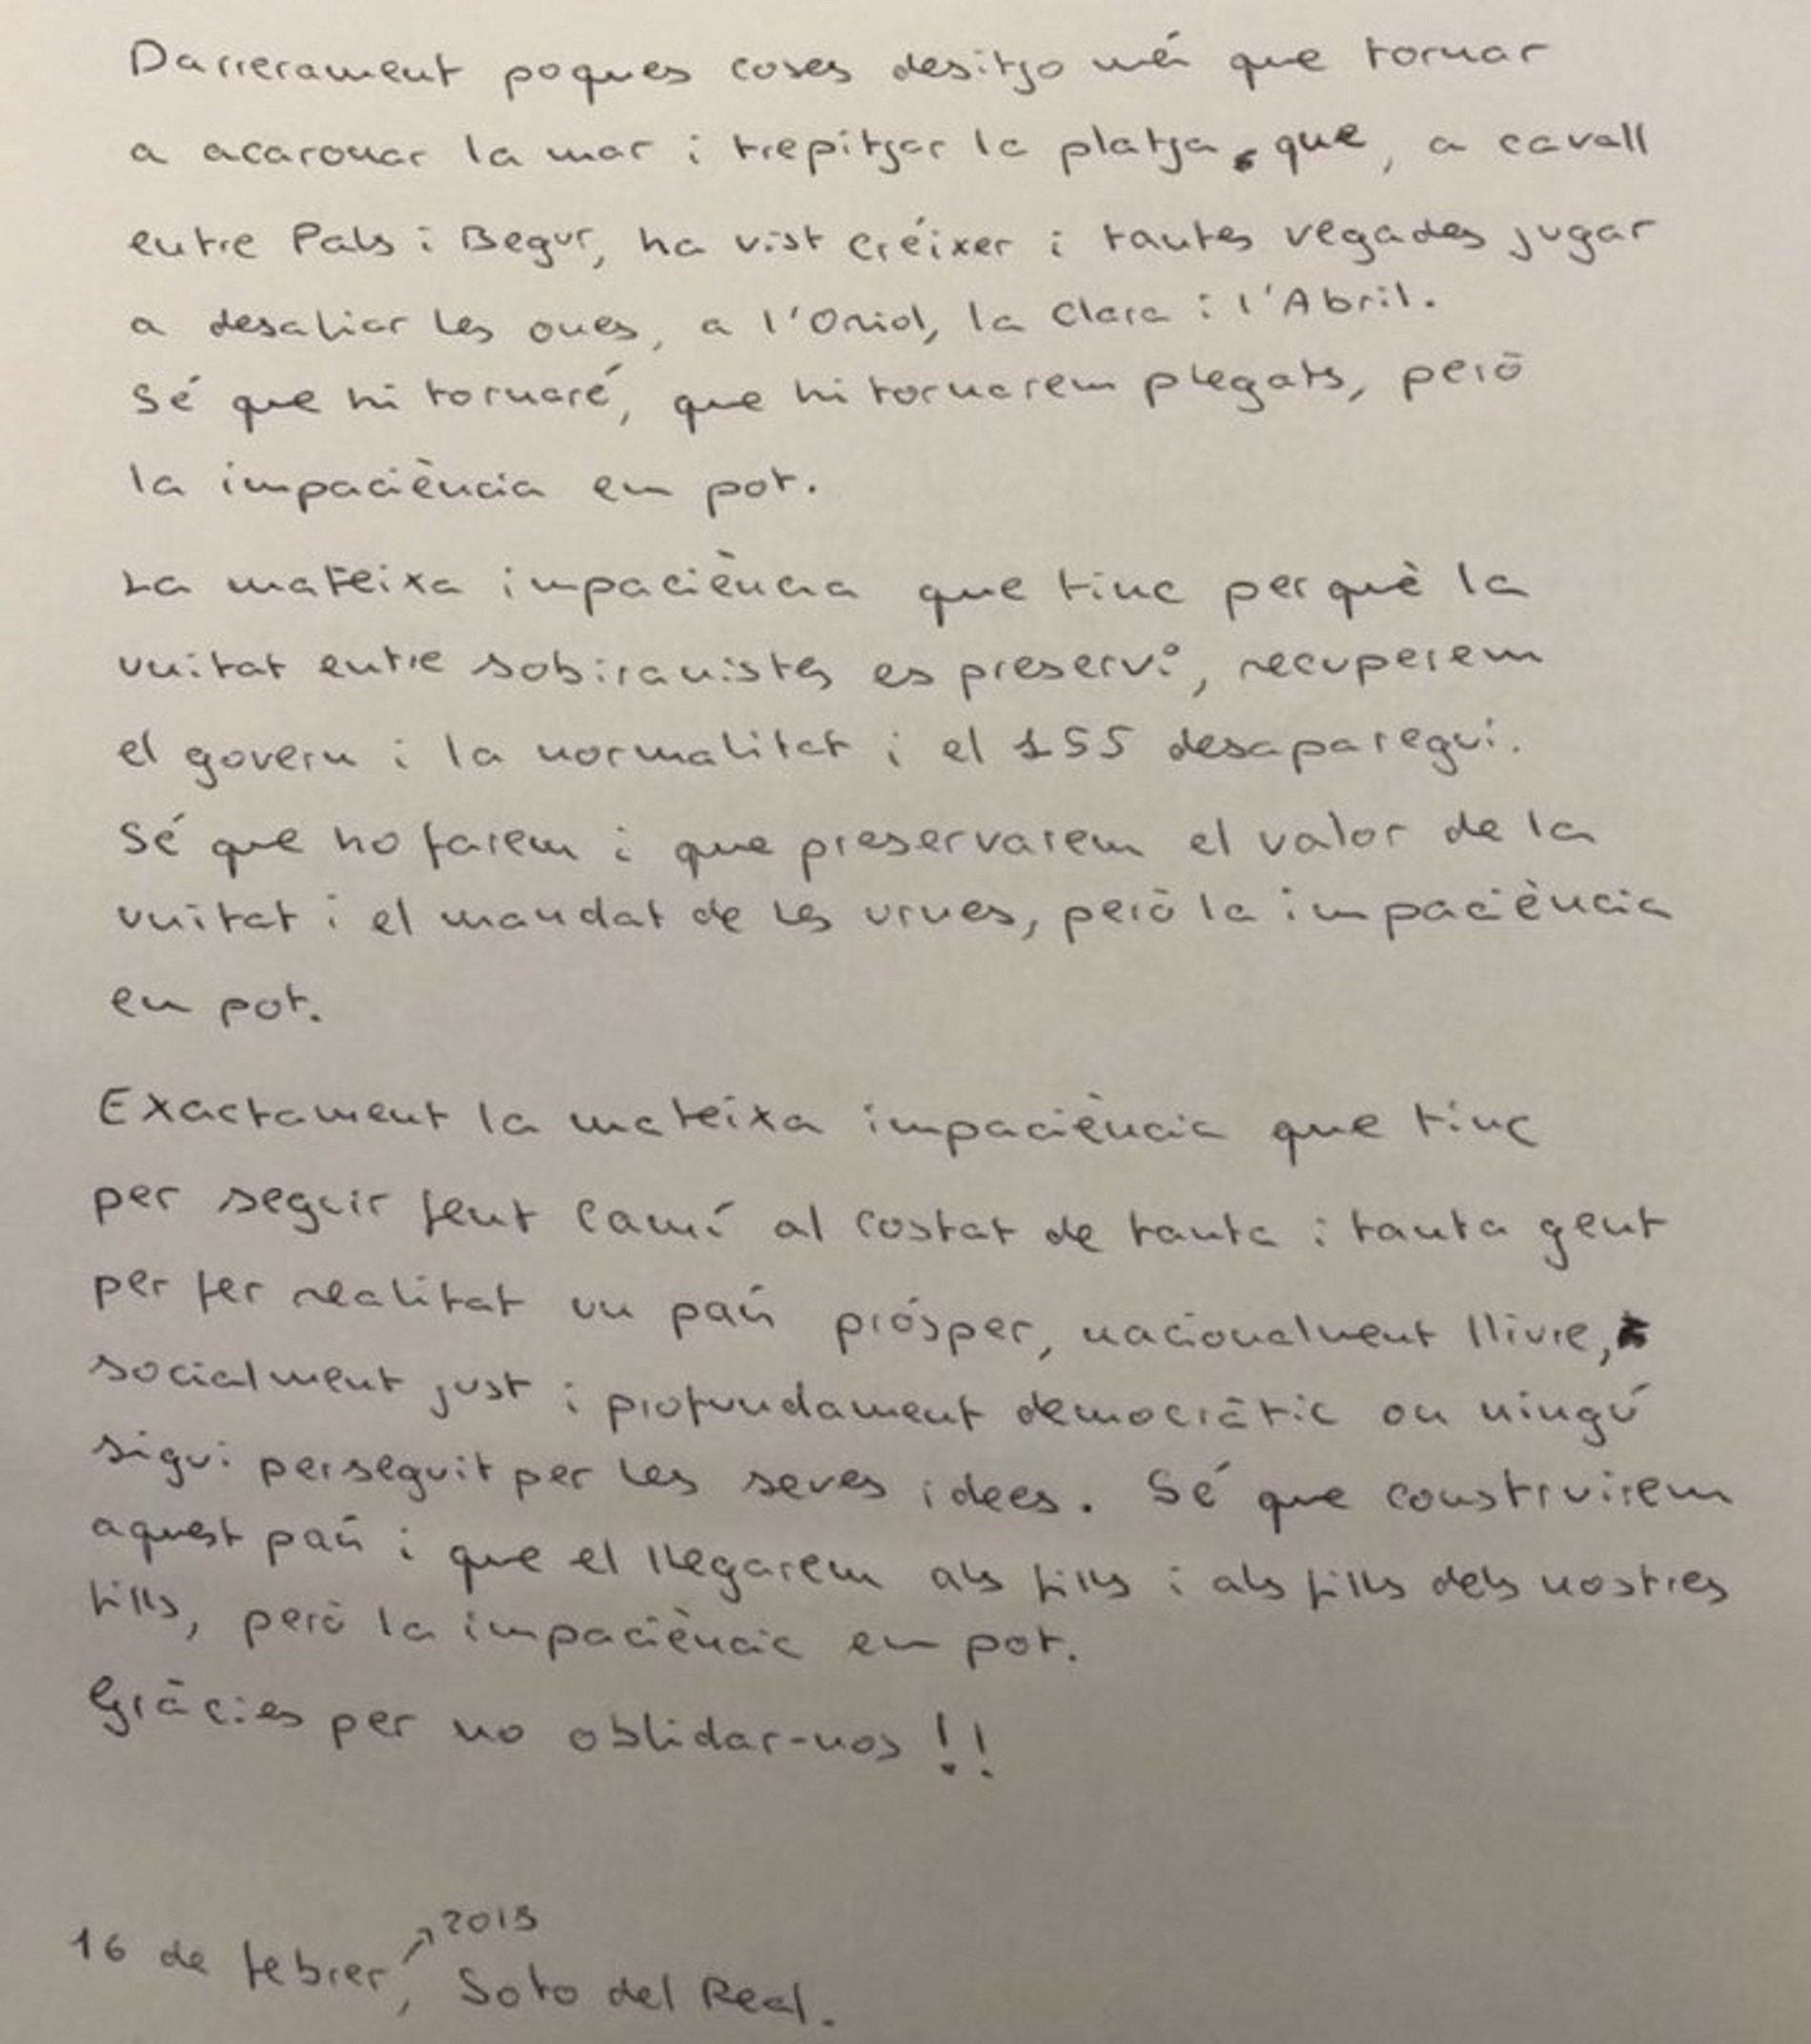 Darrerament poques coses desitjo més que tornar
a acaronar la mar i trepitjar la platja que, a cavall
entre Pals i Begur, ha vist créixer i tantes vegades jugar
a desafiar les ones, a l'Oriol, la Clara i l'Abril.
Sé que hi tornaré, que hi tornarem plegats, però
la impaciència em pot.
La mateixa impaciència que tinc perquè la
unitat entre sobiranistes es preservi, recuperem
el govern i la normalitat i el 155 desaparegui.
Sé que ho farem i que preservarem el valor de la
unitat i el mandat de les urnes, però la impaciència
em pot.
Exactament la mateixa impaciència que tinc
per seguir fent camí al costat de tanta i tanta gent
per fer realitat un país pròsper, nacionalment lliure,
socialment just i profundament democràtic on ningú
sigui perseguit per les seves idees. Sé que construirem
aquest país i que el llegarem als fills i als fills dels nostres
fills, però la impaciència em pot.
Gràcies per no oblidar-nos!!
2018
16 de febrer, Soto del Real.